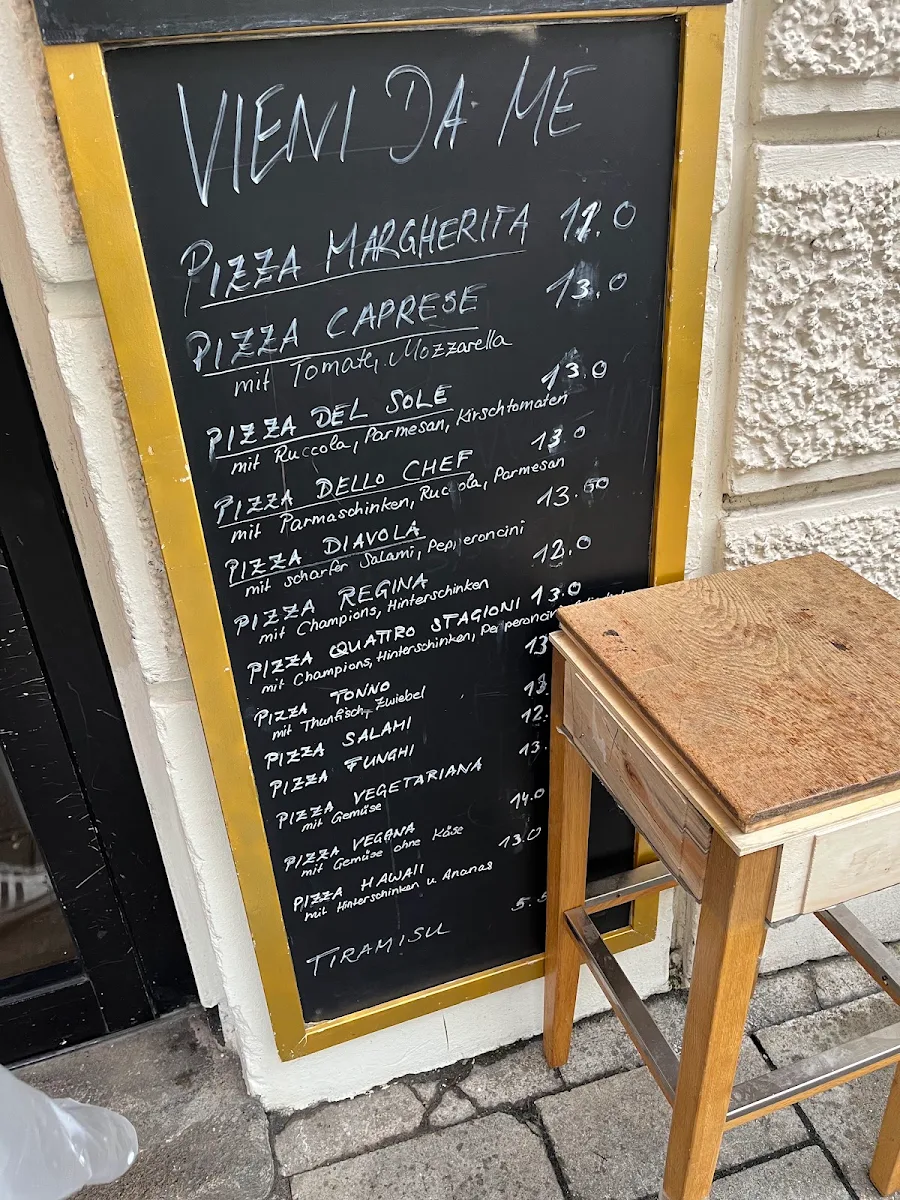 VIENI DA ME
PIZZA MARGHERITA
PIZZA CAPRESE 13.0
mit Tomate, Mozzarella
PIZZA DEL SOLE 13.0
mit Ruccola, Parmesan, Kirschtomaten
PIZZA DELLO CHEF 13.0
mit Parmaschinken, Ruccola, Parmesan
PIZZA DIAVOLA 13.50
mit scharfer Salami, Pepperoncini
PIZZA REGINA 12.0
mit Champions, Hinterschinken
PIZZA QUATTRO STAGIONI 13.0
mit Champions, Hinterschinken, Pepperoncini
PIZZA TONNO 13
mit Thunfisch, Zwiebel
PIZZA SALAMI
PIZZA FUNGHI 12.
PIZZA VEGETARIANA 13.
mit Gemüse
PIZZA VEGANA 14.0
mit Gemüse ohne Käse
PIZZA HAWAII 13.0
mit Hinterschinken u Ananas
TIRAMISU 5.5